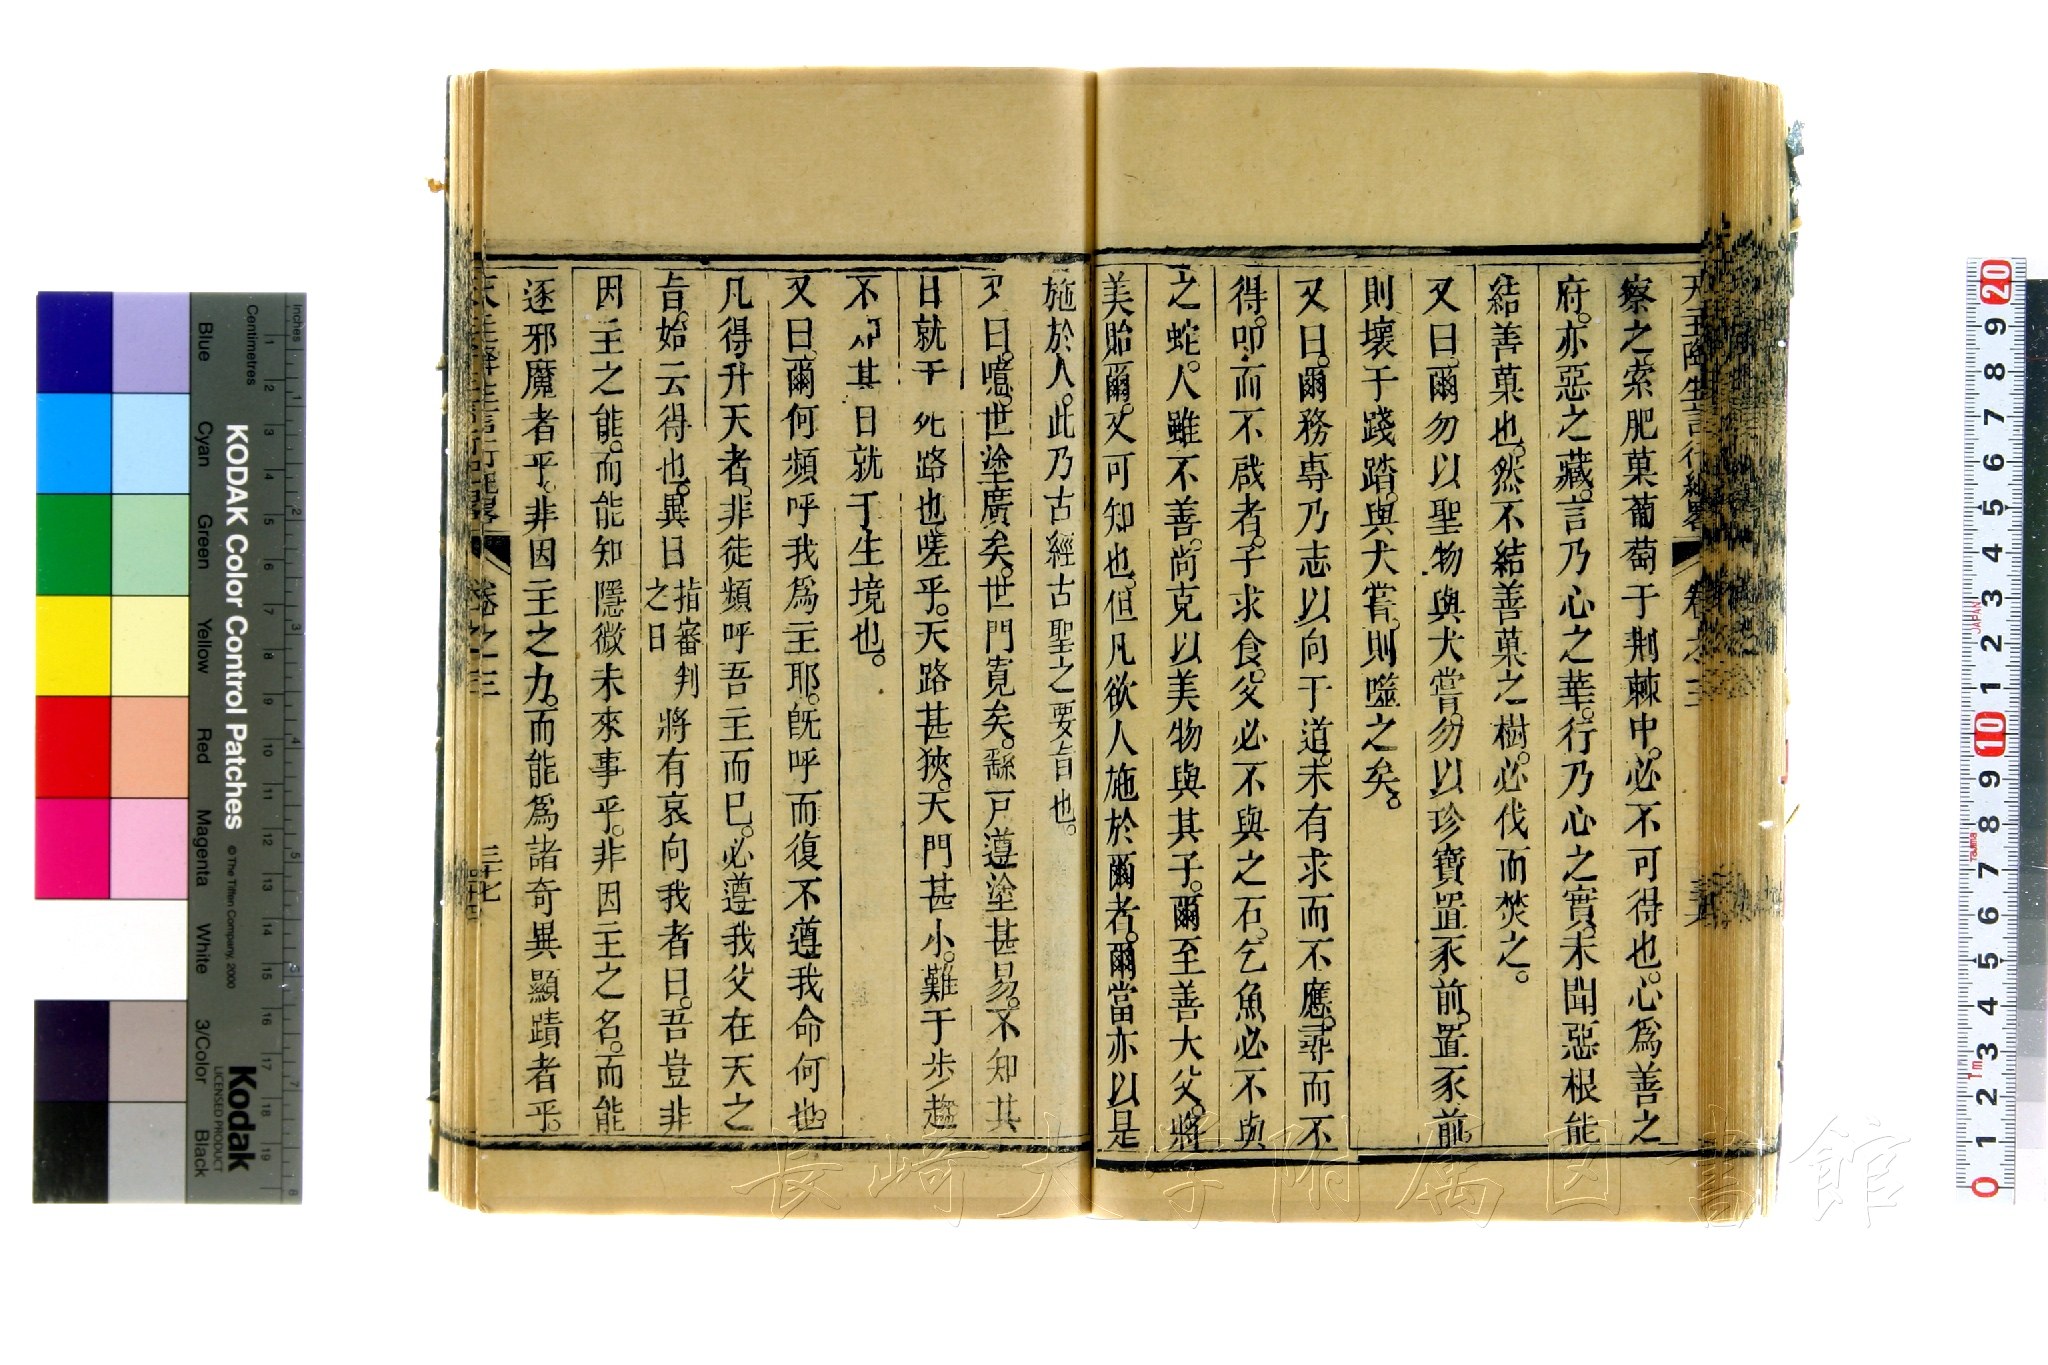 察之索肥菓葡萄于荆棘中。必不可得也。心爲善之
府。亦惡之藏。言乃心之華。行乃心之實。未聞惡根能
結善菓也。然不結善菓之樹。必伐而焚之。
又曰。爾勿以聖物與犬嘗。勿以珍寶置豕前。置豕前。
則壞于踐踏。與犬嘗。則噬之矣。
又曰。爾務專乃志以向于道。未有求而不應。尋而不
得。叩而不啟者。子求食。父必不與之石。乞魚必不與
之蛇。人雖不善。尚克以美物與其子。爾至善大父。將
美貽爾。又可知也。但凡欲人施於爾者。爾當亦以是
施於人。此乃古經古聖之要旨也。
又曰。噫。世塗廣矣。世門寬矣。繇戸遵塗甚易。不知其
日就于死路也。嗟乎。天路甚狹。天門甚小。難于步趨
不知其日就于生境也。
又曰。爾何頻呼我爲主耶。旣呼而復不遵我命何也。
凡得升天者。非徒頻呼吾主而已。必遵我父在天之
旨。始云得也。異日指審判之日將有哀向我者曰。吾豈非
因主之能。而能知隱微未來事乎。非因主之名。而能
逐邪魔者乎。非因主之力。而能爲諸奇異顯蹟者乎。
天主降生言行紀畧 卷之三 三十七
KODAK Color Control Patches
© The Tiffen Company, 2000
Kodak
LICENSED PRODUCT
Inches
Centimetres
Blue
Cyan
Green
Yellow
Red
Magenta
White
3/Color
Black
長崎大学附属図書館